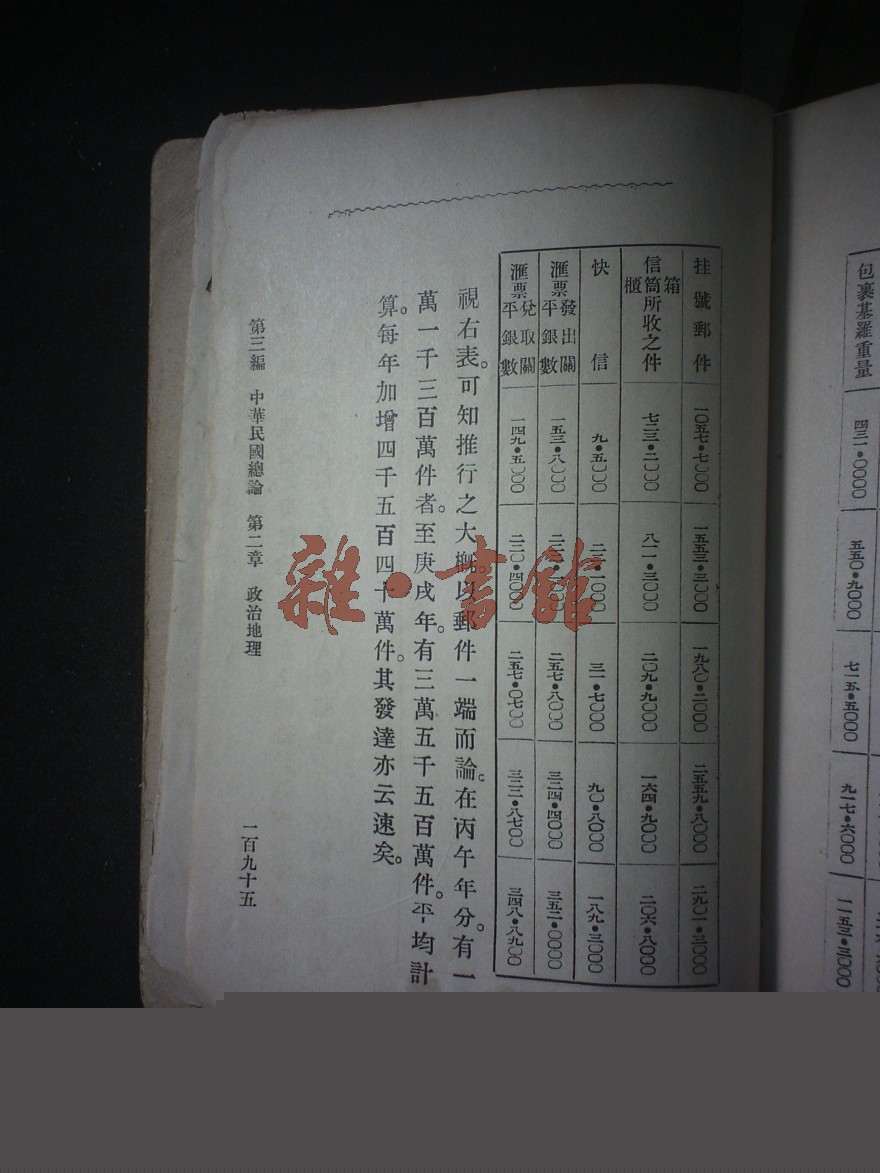 包裹基羅重量 四三一•〇〇〇〇 五五〇•九〇〇〇 七一五•五〇〇〇 九一七•六〇〇〇 一一五三•三〇〇〇
挂號郵件 一〇五七•七〇〇〇 一五五三•三〇〇〇 一九八〇•二〇〇〇 二五五九•八〇〇〇 二九〇一•三〇〇〇
信筒箱櫃所收之件 七二三•二〇〇〇 八一一•三〇〇〇 二〇九•九〇〇〇 一六四•九〇〇〇 二〇六•八〇〇〇
快信 九•五〇〇〇 〇〇〇 三一•七〇〇〇 九〇•八〇〇〇 一八九•三〇〇〇
滙票發出關平銀數 一五三•八〇〇〇 二五七•八〇〇〇 三二四•四〇〇〇 三五二•〇〇〇〇
滙票兌取關平銀數 一四九•五〇〇〇 二三〇•四〇〇〇 二五七•〇七〇〇 三二二•八七〇〇 三四八•八九〇〇
視右表。可知推行之大概。以郵件一端而論。在丙午年分。有一
萬一千三百萬件者。至庚戌年。有三萬五千五百萬件。平均計
算。每年加增四千五百四十萬件。其發達亦云速矣。
第三編 中華民國總論 第二章 政治地理
一百九十五
雜•書館